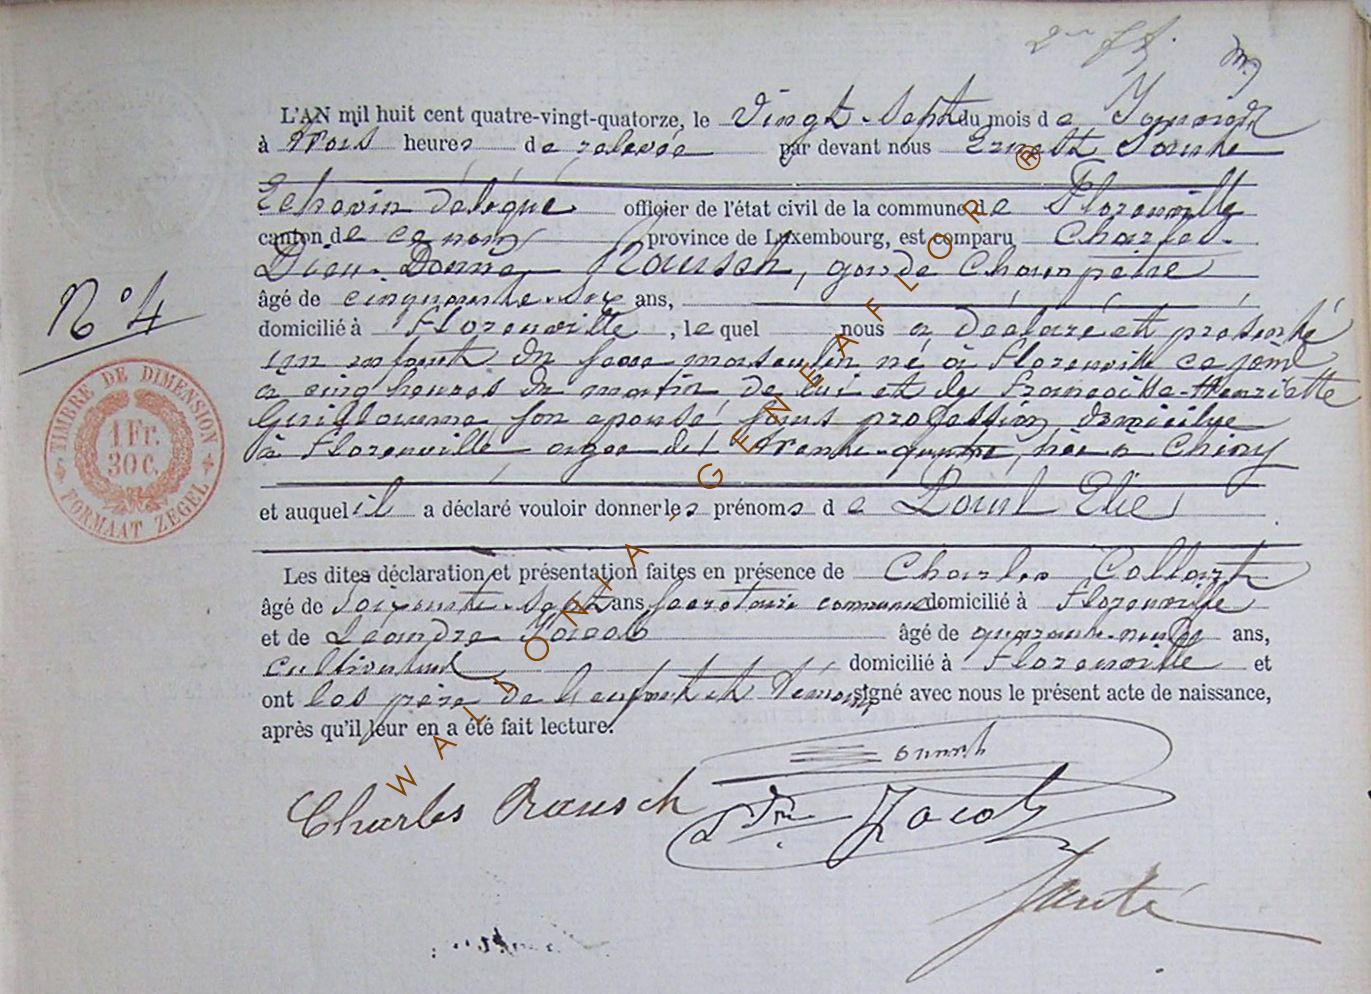 L'AN mil huit cent quatre-vingt-quatorze, le Vingt-Sept du mois de Janvier
à trois heures de relevée par devant nous Ernest Santé
Echevin délégué officier de l'état civil de la commune de Florenville
canton de ce nom province de Luxembourg, est comparu Charles-
Dieu-Donné Rausch, garde Champêtre
N° 4
âgé de cinquante-six ans,
domicilié à Florenville, lequel nous a déclaré et présenté
un enfant du sexe masculin né à Florenville ce jour
à cinq heures du matin de lui et de Françoise-Henriette
Guillaume son épouse, sans profession, domiciliée
à Florenville âgée de trente-quatre, née à Chiny
TIMBRE DE DIMENSION
1 Fr.
30 C.
FORMAAT ZEGEL
et auquel il a déclaré vouloir donner les prénoms de Louis Elie
Les dites déclaration et présentation faites en présence de Charles Collart
âgé de Soixante-Sept ans Secrétaire communal domicilié à Florenville
et de Léandre Jacob âgé de quarante-neuf ans,
cultivateur domicilié à Florenville et
ont les père de l'enfant et témoins signé avec nous le présent acte de naissance,
après qu'il leur en a été fait lecture.
Charles Rausch
Jacob
Santé
WALLONIA-GENEAFLOR®